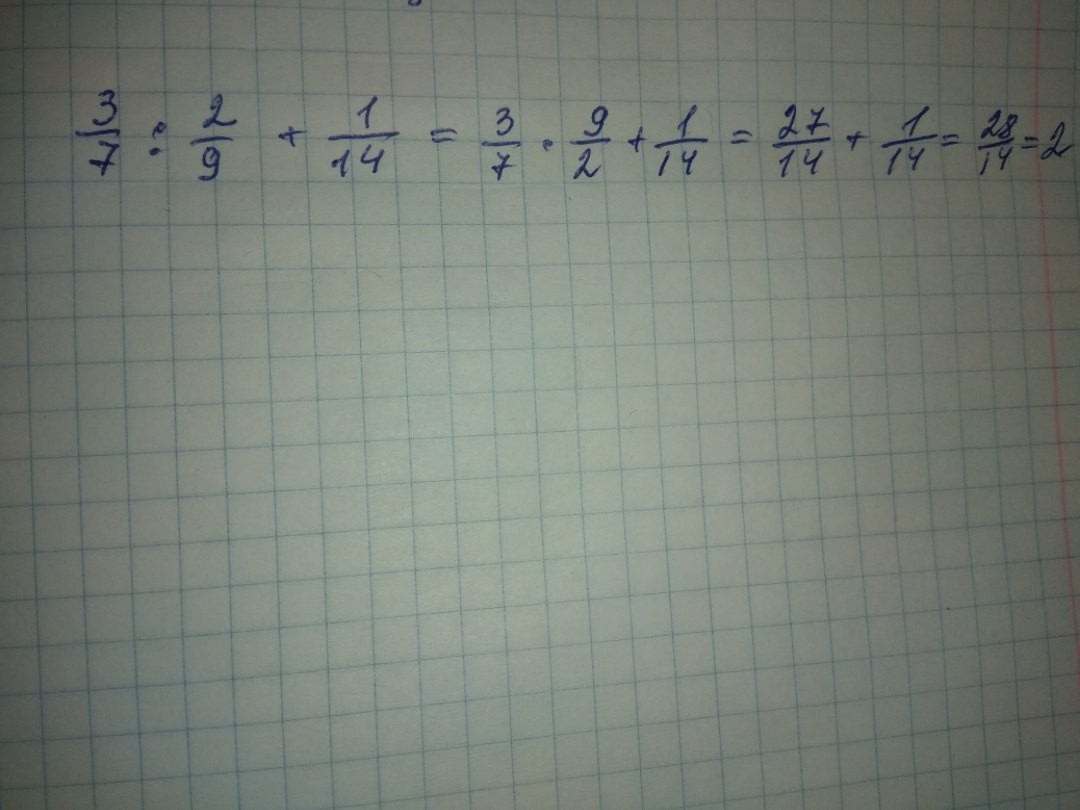 3/7 : 2/9 + 1/14 = 3/7 · 9/2 + 1/14 = 27/14 + 1/14 = 28/14 = 2